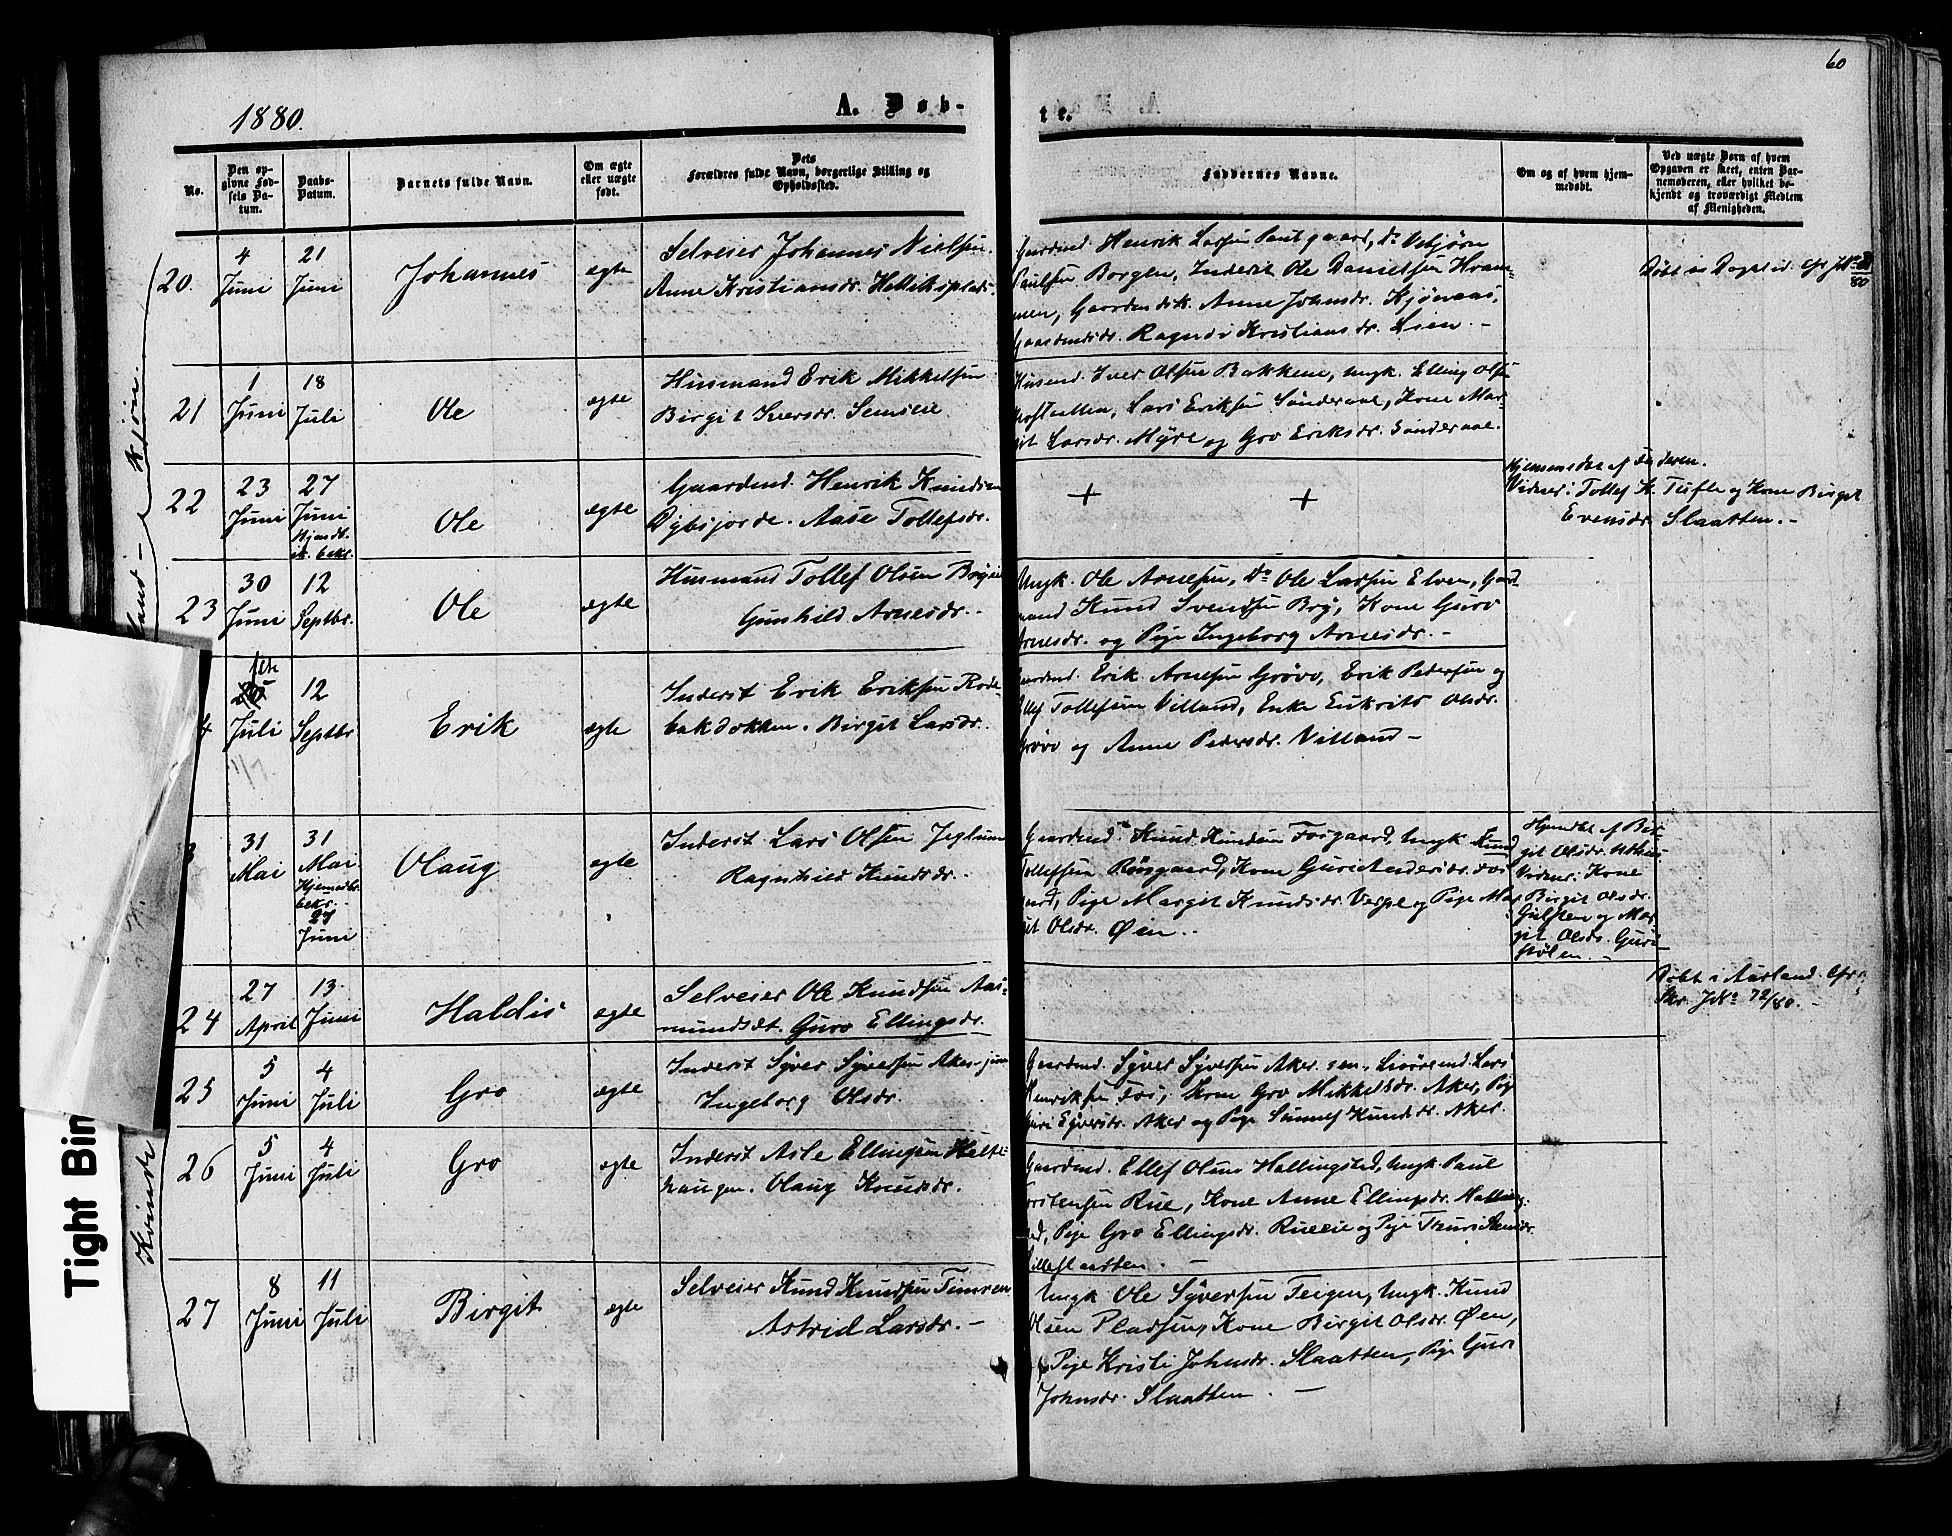 60
1880.
A. Døb-
te.
No.
Den op-
givne Fød-
sels Da-
tum.
Daabs-
Datum.
Barnets fulde Navn.
Om ægte
eller uægte
født.
Dets
Forældres fulde Navn, borgerlige Stilling og
Opholdssted.
Faddernes Navne.
Om og af hvem hjem-
medøbt.
Ved uægte Børn af hvem
Opgaven er skeet, enten Bar-
nemoderen, eller hvilket be-
kjendt og troværdigt Medlem
af Menigheden.
Kjøn.
20.
4
Juni
21
Juni
Johannes
ægte
Selveier Johannes Nielsen
Anne Kristiansdr.
Gaardmd. Henrik Larsen
Paulsen Borgen, Inderst Ole Danielsen
Anne Johnsdr. Kjønaas,
Kristiansdr. Lien. -
Døbt
80
21
1
Juni
18
Juli
Ole
ægte
Husmand Erik Mikkelsen
Birgit Iversdr. Semseie
Husmd. Iver Olsen Bakkene, Ungk. Elling Olsen
Lars Eriksen Sønderaal, Kone Mar-
git Larsdr. Myre og Gro Eriksdr. Sønderaal.
22
23
Juni
27
Juni
Hjemdb.
Ole
ægte
Gaardmd. Henrik Knudsen
Aase Tollefsdr.
+ +
Hjemmedøbt af Faderen.
Vidner: Tollef K. Tufte og Kone Birgit
Evensdr. Slaatten. -
23
30
Juni
12
Septbr.
Ole
ægte
Husmand Tollef Olsen
Gunhild Arnesdr. -
Ungk. Ole Arnesen, Do Ole Larsen Elven, Gaard-
mand Knud Svendsen Bry, Kone Guro
Arnesdr. og Pige Ingeborg Arnesdr. -
4
1ste
Juli
12
Septbr
Erik
ægte
Inderst Erik Eriksen Rode-
bakdokken. Birgit Larsdr.
Gaardmd. Erik Arnesen Grøvo, Erik Pedersen og
Tollefsen Villand, Enke Olsdr.
Grøvo og Anne Pedersdr. Villand -
3
31
Mai
31
Mai
Hjemmedbt.
bekr.
27
Juni
Olaug
ægte
Inderst Lars Olsen
Ragnhild Knudsdr. -
Gaardmd. Knud Knudsen Forgaard, Ungk. Knud
Tollefsen Røsgaard, Kone Guri Andersdr.
Pige Margit Knudsdr. og Pige Mar-
git Olsdr. Øen. -
Hjemdbt af Bir-
git Olsdr.
Vidner: Kone
Birgit Olsdr.
Gulsten og Mar-
git Olsdr. Guri-
stølen. -
24
27
April
13
Juni
Haldis
ægte
Selveier Ole Knudsen Aas-
mundsæt. Guro Ellingsdr.
Døbt i Aurland. Cfr.
Skr. J.No 72/80. -
25
5
Juni
4
Juli
Gro
ægte
Inderst Syver Syversen Aker jun
Ingeborg Olsdr.
Gaardmd. Syver Syversen Aker sen. Lars
Henriksen Fos, Kone Gro Mikkelsdr. Aker, Pige
Guri Syversdr. Aker og Pige Sunnef Knudsdr. Aker.
Kvinde
26
5
Juni
4
Juli
Gro
ægte
Inderst Asle Ellingsen
haugen. Olaug Knudsdr.
Gaardmd. Ellef Olsen Hallingstad, Ungk. Paul
Torstensen Rue, Kone Anne Ellingsdr. Halling-
stad, Pige Gro Ellingsdr. Rueeie og Pige Thuri
Lilleslaatten. -
27
8
Juni
11
Juli
Birgit
ægte
Selveier Knud Knudsen Timren
Astrid Larsdr. -
Ungk Ole Syversen Teigen, Ungk. Knud
Olsen Pladsen, Kone Birgit Olsdr. Øen,
Pige Kristi Johnsdr. Slaatten, Pige Guri
Johnsdr. Slaatten. -
Tight Bin